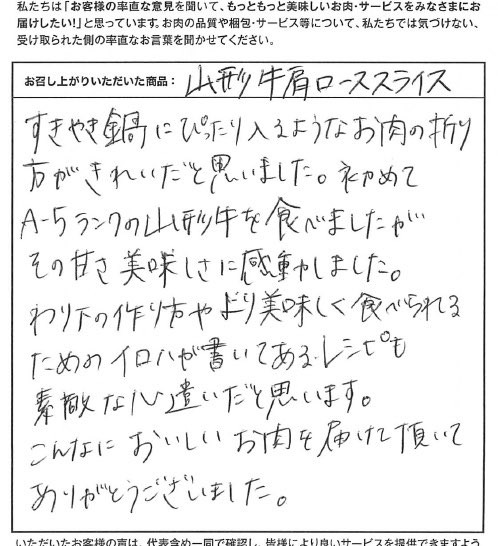 私たちは「お客様の率直な意見を聞いて、もっともっと美味しいお肉・サービスをみなさまにお
届けしたい！」と思っています。お肉の品質や梱包・サービス等について、私たちでは気づけない、
受け取られた側の率直なお言葉を聞かせてください。
お召し上がりいただいた商品： 山形牛肩ローススライス
すきやき鍋にぴったり入るようなお肉の折り
方がきれいだと思いました。初めて
A-5ランクの山形牛を食べましたが
その甘さ美味しさに感動しました。
わり下の作り方やより美味しく食べられる
ためのイロハが書いてあるレシピも
素敵な心遣いだと思います。
こんなにおいしいお肉を届けて頂いて
ありがとうございました。
いただいたお客様の声は、代表含め一同で確認し、皆様により良いサービスを提供できますよう